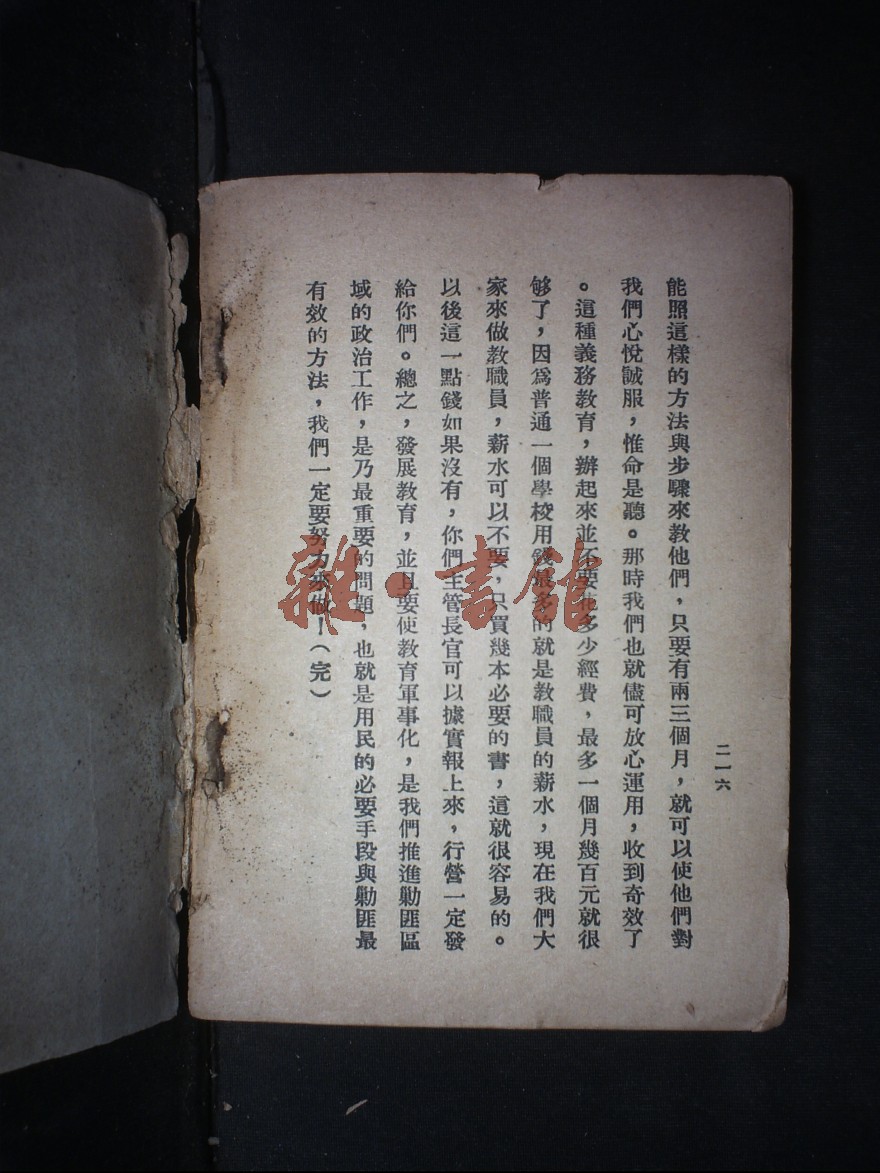 能照這樣的方法與步驟來教他們，只要有兩三個月，就可以使他們對
我們心悅誠服，惟命是聽。那時我們也就儘可放心運用，收到奇效了
。這種義務教育，辦起來並不要花多少經費，最多一個月幾百元就很
够了，因爲普通一個學校用錢最多的就是教職員的薪水，現在我們大
家來做教職員，薪水可以不要，只買幾本必要的書，這就很容易的。
以後這一點錢如果沒有，你們主管長官可以據實報上來，行營一定發
給你們。總之，發展教育，並且要使教育軍事化，是我們推進勦匪區
域的政治工作，是乃最重要的問題，也就是用民的必要手段與勦匪最
有效的方法，我們一定要努力來做！（完）
二一六
雜·書館